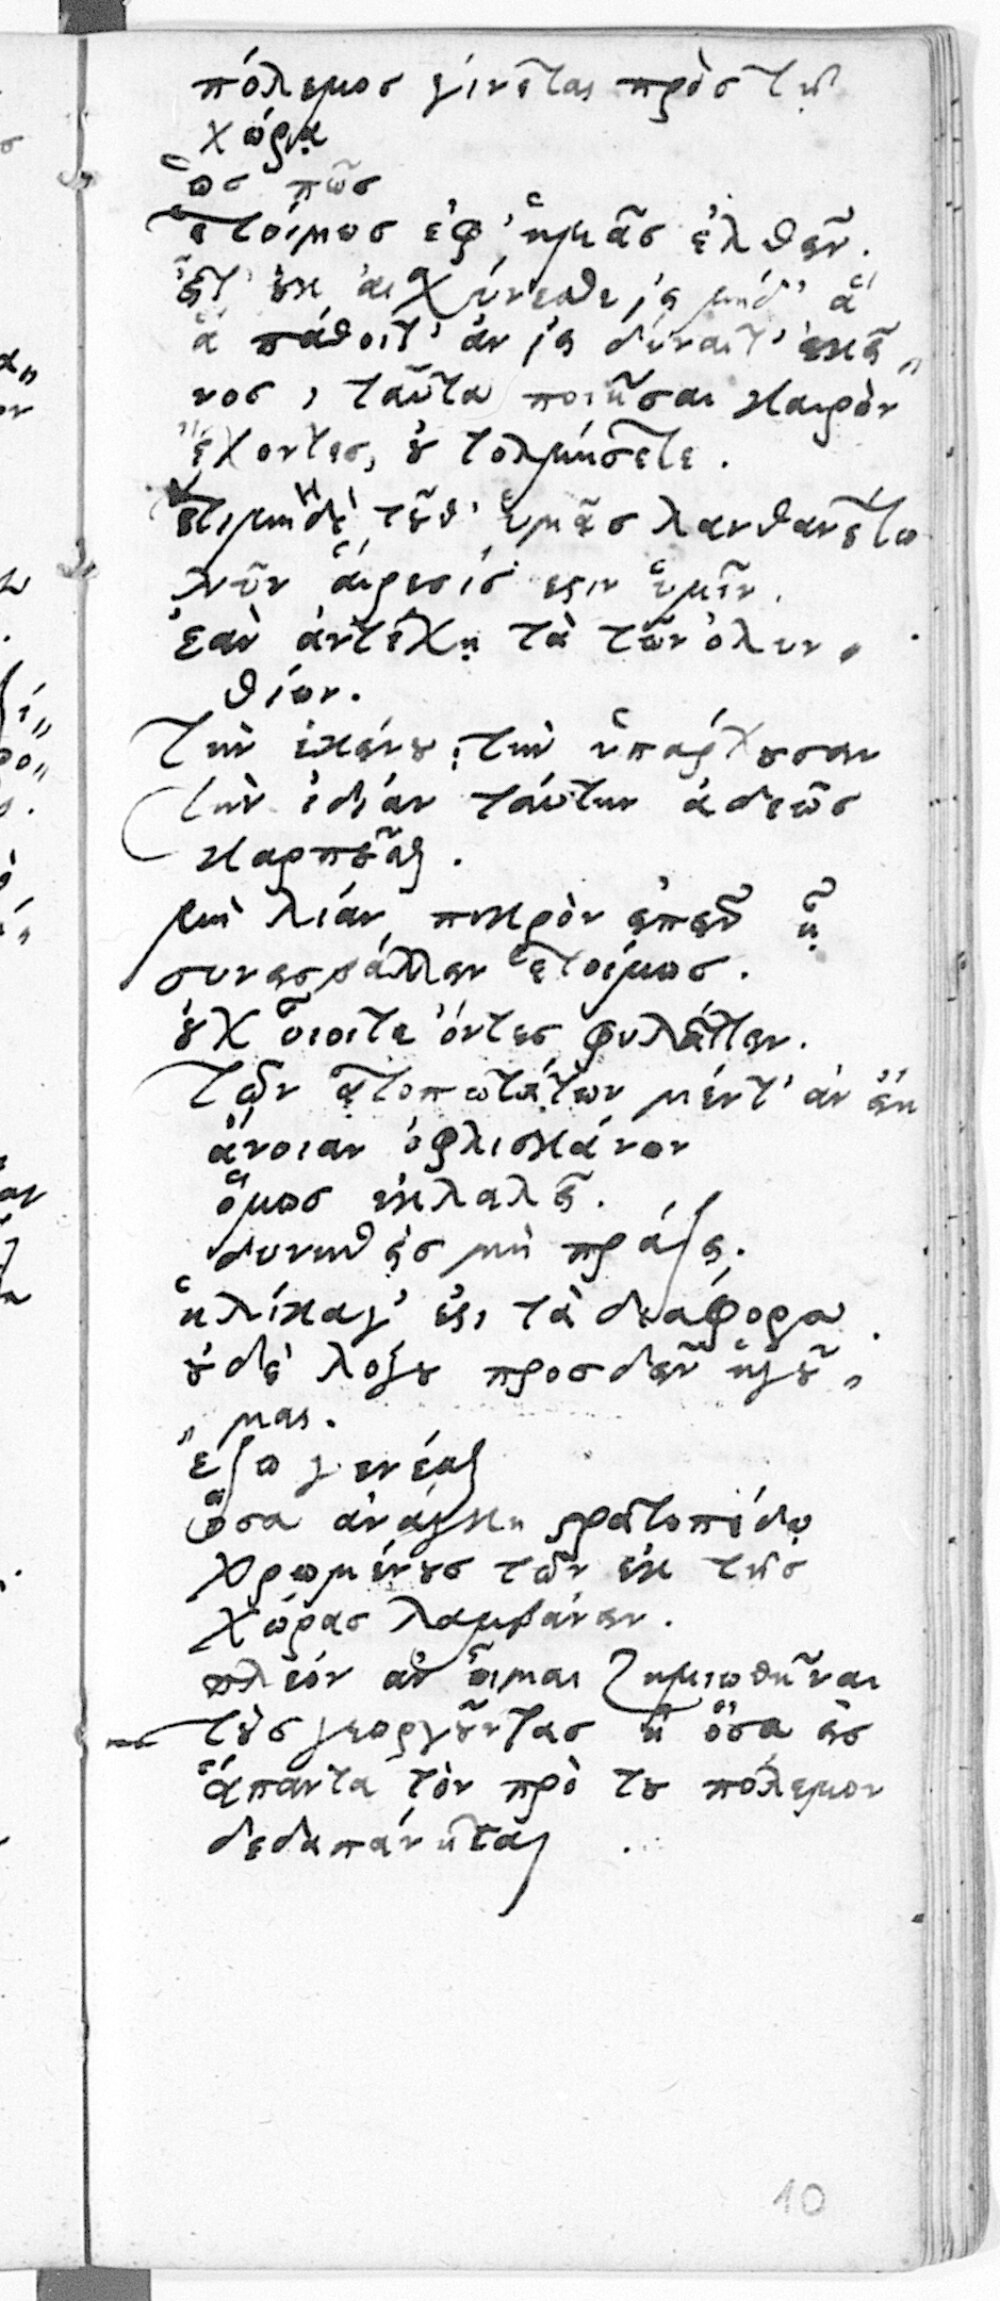 πόλεμος γίνεται πρὸς τῇ
χώρᾳ
ὡς πῶς
ἑτοίμως ἐφ' ἡμᾶς ἐλθεῖν.
εἶτ' οὐκ αἰσχύνεσθε εἰ μήδ' ἃ
ἃ πάθοιτ' ἂν εἰ δύναιτ' ἐκεῖ„
νος, ταῦτα ποιῆσαι καιρὸν
ἔχοντες, οὐ τολμήσετε.
ἔτι μηδὲ τοῦθ' ὑμᾶς λανθανέτω
νῦν αἵρεσίς ἐστιν ὑμῖν.
ἐαν ἀντέχῃ τὰ τῶν ὀλυν„
θίων.
τὴν ἐκείνου, τὴν ὑπάρχουσαν
τὴν ἰδίαν ταύτην ἀδεῶς
καρπούμενοι.
μὴ λίαν πικρὸν εἰπεῖν ᾖ
συνεισβάλλειν ἑτοίμως.
οὐχ οἷοίτε ὄντες φυλάττειν.
τῶν ἀτοπωτάτων μέντ' ἂν εἴη
ἄνοιαν ὀφλισκάνων
ὅμως ἐκλαλεῖ.
δυνηθεὶς μὴ πράξει.
ἡλίκαγ' ἐστι τὰ διάφορα.
οὐδὲ λόγου προσδεῖν ἡγοῦ„
„μαι.
ἔξω γενέσθαι
ὅσα ἀνάγκη στρατοπέδῳ
χρωμένους τῶν ἐκ τῆς
χώρας λαμβάνειν.
πλέον ἂν οἶμαι ζημιωθῆναι
τοὺς γεωργοῦντας ἢ ὅσα εἰς
ἅπαντα τὸν πρὸ του πόλεμον
δεδαπάνηται.
10